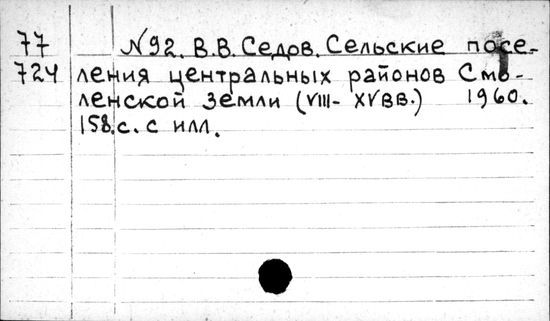 77 N92. В.В. Седов. Сельские посе-
724 ления центральных районов Смо-
ленской земли (VIII- XV вв.) 1960.
158.с. с илл.